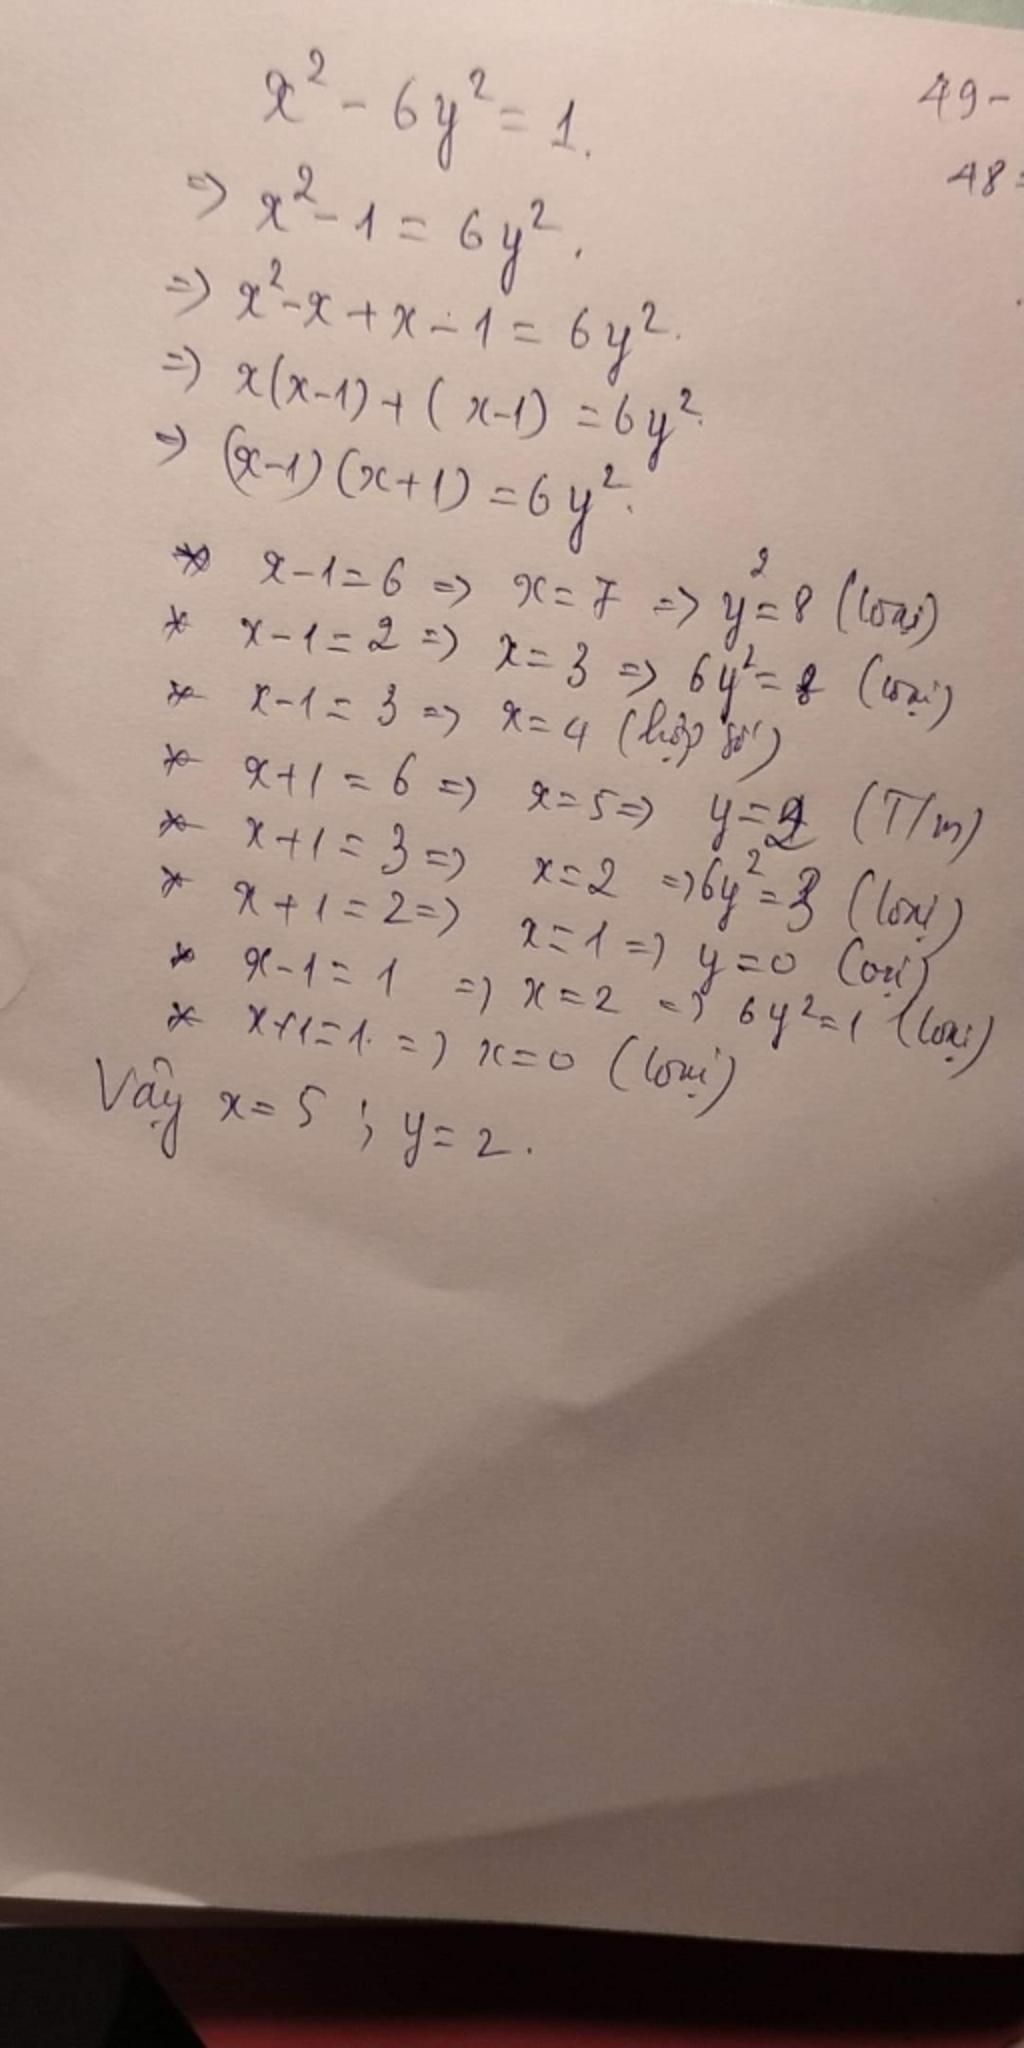 x² - 6y² = 1.
49-
=> x² - 1 = 6y².
48=
=> x² - x + x - 1 = 6y².
=> x(x-1) + (x-1) = 6y².
=> (x-1)(x+1) = 6y².
* x-1=6 => x=7 => y²=8 (loại)
* x-1=2 => x=3 => 6y²=8 (loại)
* x-1=3 => x=4 (hợp số)
* x+1=6 => x=5 => y=2 (T/m)
* x+1=3 => x=2 => 6y²=3 (loại)
* x+1=2 => x=1 => y=0 (loại)
* x-1=1 => x=2 => 6y²=1 (loại)
* x+1=1. => x=0 (loại)
Vậy x=5 ; y=2.